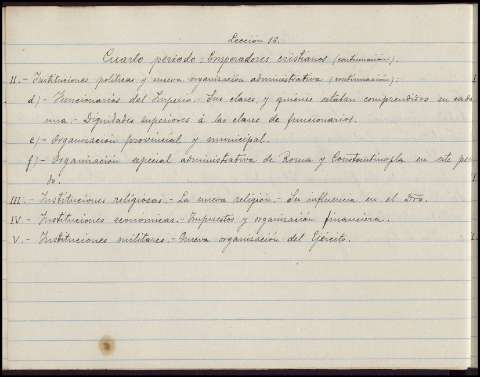 Lección 18.
Cuarto periodo - Emperadores cristianos (continuación).
II.- Instituciones políticas y nueva organización administrativa (continuación):
d) - Funcionarios del Imperio.- Sus clases y quiénes estaban comprendidos en cada
una.- Dignidades superiores á las clases de funcionarios.
e) - Organización provincial y municipal.
f) - Organización especial administrativa de Roma y Constantinopla en este perío-
do.
III.- Instituciones religiosas.- La nueva religión.- Su influencia en el Dro.
IV.- Instituciones económicas.- Impuestos y organización financiera.
V.- Instituciones militares.- Nueva organización del Ejército.